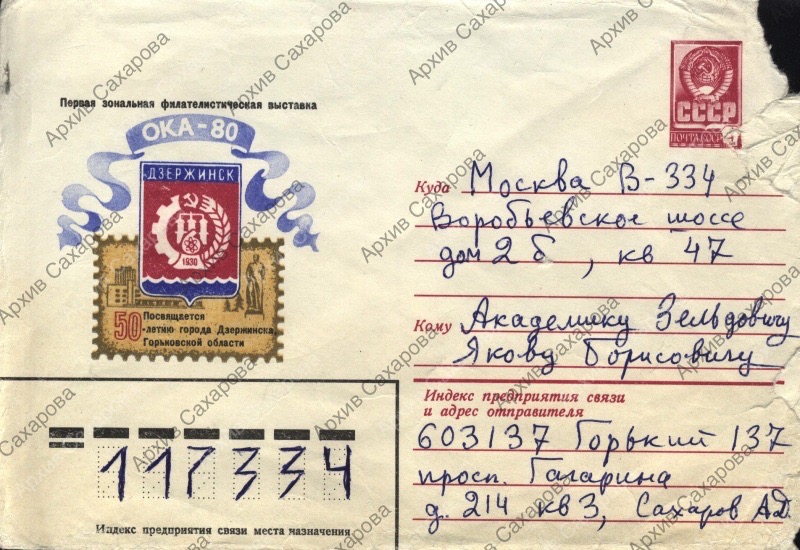 Первая зональная филателистическая выставка
ОКА-80
ДЗЕРЖИНСК
1930
50
Посвящается
-летию города Дзержинска
Горьковской области
СССР
ПОЧТА СССР
Куда Москва В-334
Воробьевское шоссе
дом 2 б, кв 47
Кому Академику Зельдовичу
Якову Борисовичу
Индекс предприятия связи
и адрес отправителя
603137 Горький 137
просп. Гагарина
д. 214 кв 3, Сахаров А.Д.
117334
Индекс предприятия связи места назначения
Архив Сахарова